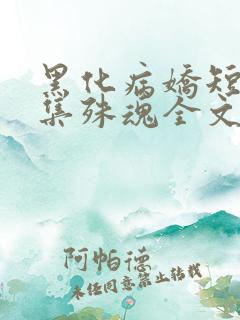 黑化病嬌短
集殊魂全文
阿帕德
未经同意禁止转载